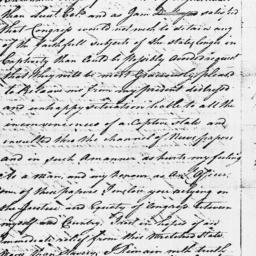 than
that Congress would not wish to detain any
of the faithfull Subjects of the states longer in
Captivity than
that they will be most Graciously pleased
to Releive me from my present distressed
and unhappy situation liable to all the
inconveniences of a Captive State and
insulted thro the channel of Newspapers
and in such a manner as hurts my feelings
as a man, and my honour as an Officer
one of these papers I inclose you relying on
the Justice and Equity of Congress between
myself and Country, and in hopes of an
immediate relief from this Wretched State
Worse than Slavery, I Remain with truth